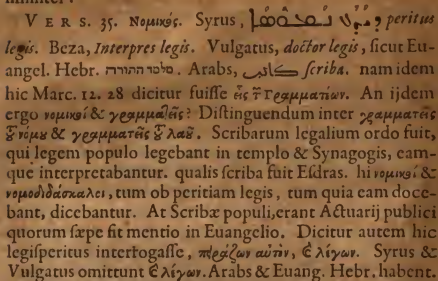 VERS. 35. Νομικός. Syrus, peritus
legis. Beza, Interpres legis. Vulgatus, doctor legis, sicut Eu-
angel. Hebr. מלמד התורה. Arabs, كاتب scriba. nam idem
hic Marc. 12. 28 dicitur fuisse εἷς τ̃ Γραμματέων. An ijdem
ergo νομικοί & γραμματεῖς? Distinguendum inter γραμματεῖς
ξ̃ νόμου & γραμματεῖς ξ̃ λαοῦ. Scribarum legalium ordo fuit,
qui legem populo legebant in templo & Synagogis, eam-
que interpretabantur. qualis scriba fuit Esdras. hi νομικοί &
νομοδιδάσκαλοι, tum ob peritiam legis, tum quia eam doce-
bant, dicebantur. At Scribæ populi, erant Actuarij publici
quorum sæpe fit mentio in Euangelio. Dicitur autem hic
legisperitus interrogasse, πειράζων αὐτὸν, ϗ λέγων. Syrus &
Vulgatus omittunt ϗ λέγων. Arabs & Euang. Hebr. habent.